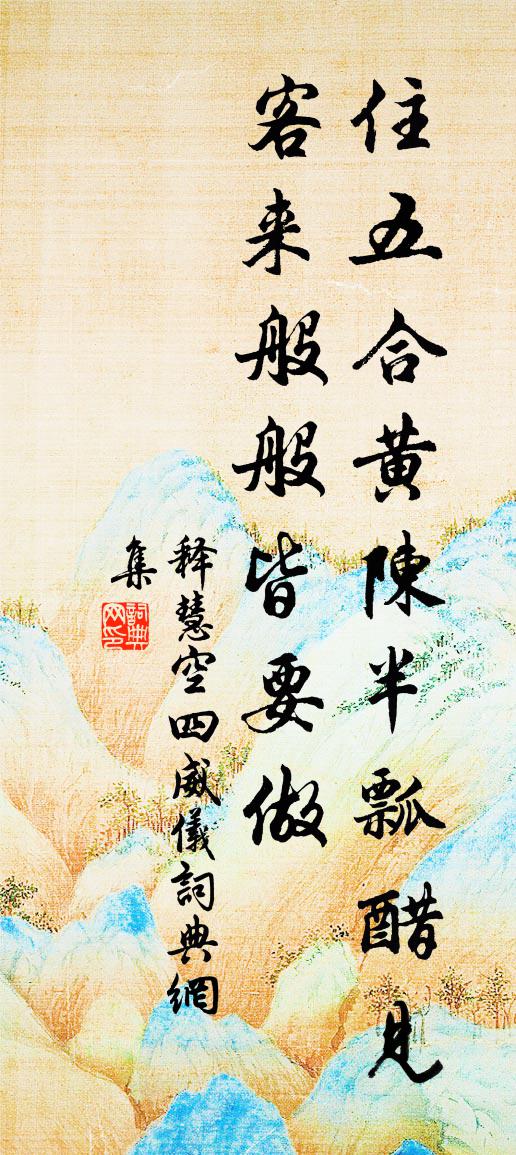 住五合黄陳半瓢醋見
客来般般皆要做
释慧空四威儀詞典網
集
詞典
网印